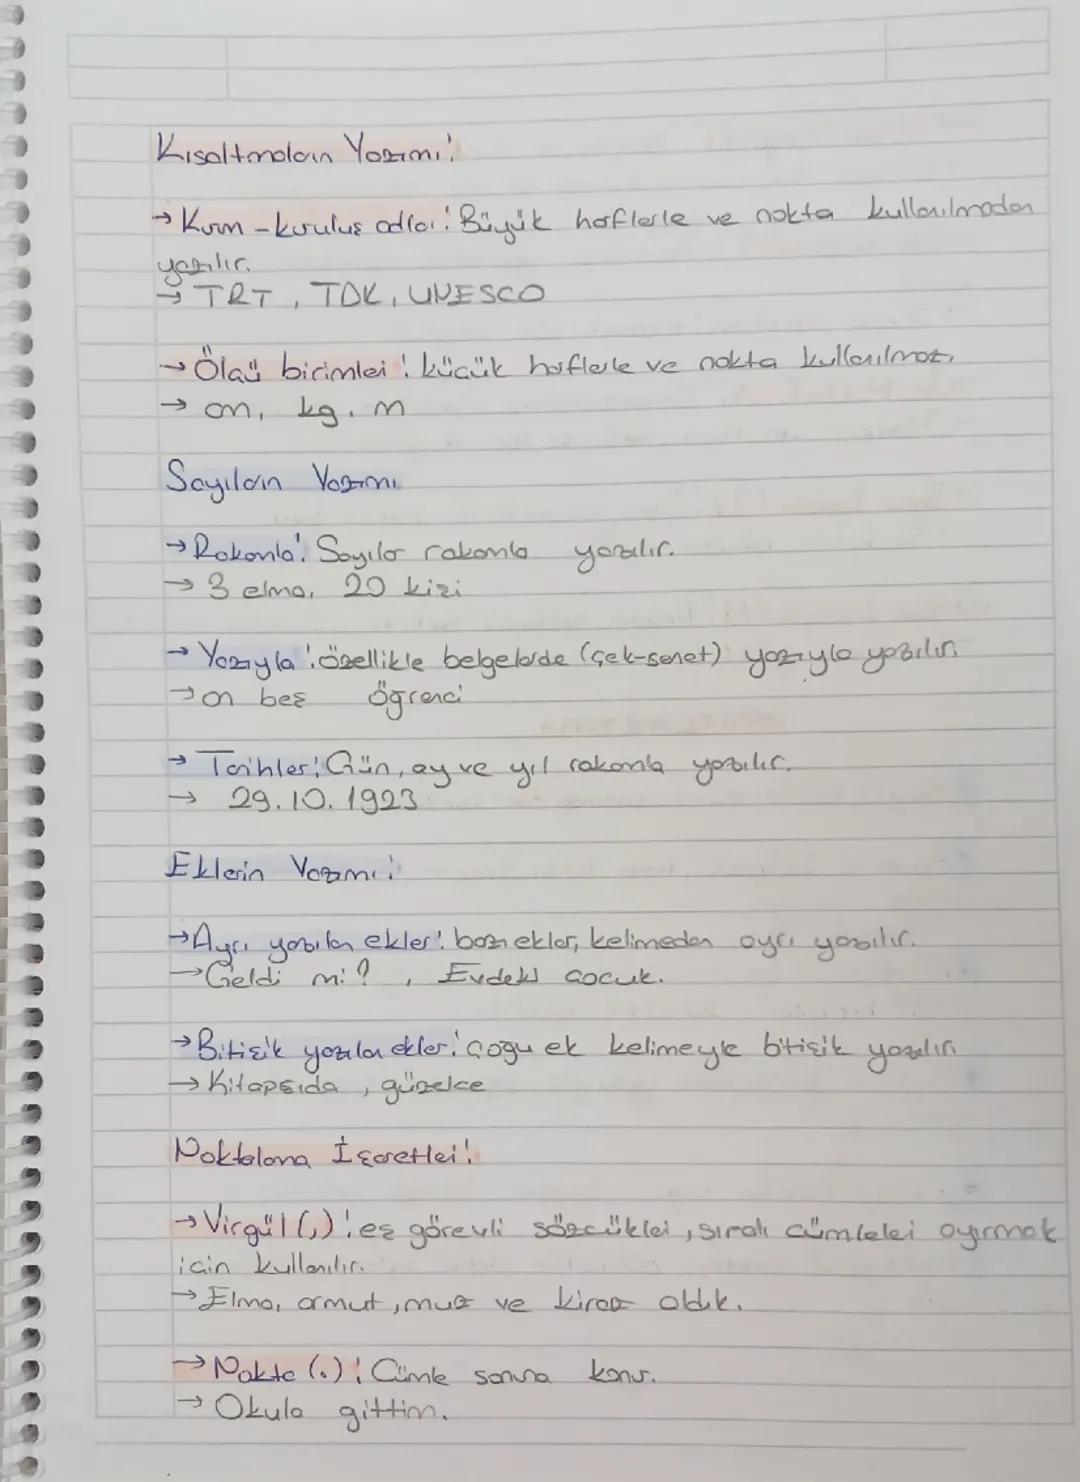 Kısaltmaların Yazımı:
→ Kurum-kuruluş adları: Büyük harflerle ve nokta kullanılmadan
yazılır.
→ TRT, TDK, UNESCO
→ Ölçü birimleri: küçük harflerle ve nokta kullanılmaz.
→ cm, kg, m
Sayıların Yazımı
→ Rakamla: Sayılar rakamla yazılır.
→ 3 elma, 20 kişi
→ Yazıyla: özellikle belgelerde (çek-senet) yazıyla yazılır.
→ on beş öğrenci
→ Tarihler: Gün, ay ve yıl rakamla yazılır.
→ 29.10.1923
Eklerin Yazımı:
→ Ayrı yazılan ekler: bazı ekler, kelimeden ayrı yazılır.
→ Geldi mi?, Evdeki çocuk.
→ Bitişik yazılan ekler: çoğu ek kelimeyle bitişik yazılır.
→ Kitapşıda, güzelce
Noktalama İşaretleri:
→ Virgül (,): eş görevli sözcükleri, sıralı cümleleri ayırmak
için kullanılır.
→ Elma, armut, muz ve kiraz aldık.
→ Nokta (.): Cümle sonuna konur.
→ Okula gittim.